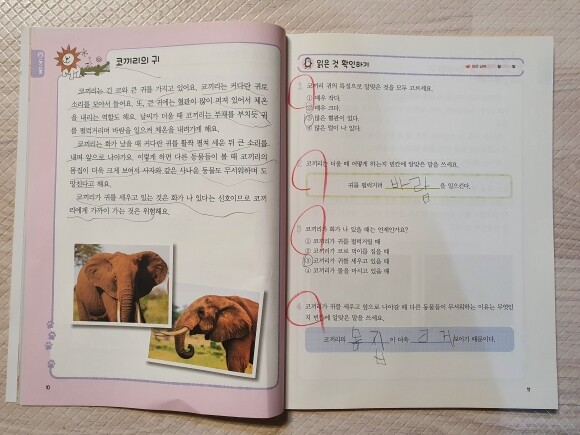 코끼리의 귀
코끼리는 긴 코와 큰 귀를 가지고 있어요. 코끼리는 커다란 귀로
소리를 모아서 들어요. 또, 큰 귀에는 혈관이 많이 퍼져 있어서 체온
을 내리는 역할도 해요. 날씨가 더울 때 코끼리는 부채를 부치듯 귀
를 펄럭거리며 바람을 일으켜 체온을 내려가게 해요.
코끼리는 화가 났을 때 커다란 귀를 활짝 펼쳐 세운 뒤 큰 소리를
내며 앞으로 나아가요. 이렇게 하면 다른 동물들이 볼 때 코끼리의
몸집이 더욱 크게 보여서 사자와 같은 사나운 동물도 무서워하며 도
망친다고 해요.
코끼리가 귀를 세우고 있는 것은 화가 나 있다는 신호이므로 코끼
리에게 가까이 가는 것은 위험해요.
10
읽은 것 확인하기
1 코끼리 귀의 특징으로 알맞은 것을 모두 고르세요.
① 매우 작다.
② 매우 크다.
③ 많은 혈관이 있다.
④ 많은 털이 나 있다.
2 코끼리는 더울 때 어떻게 하는지 빈칸에 알맞은 말을 쓰세요.
귀를 펄럭거려 바람 을 일으킨다.
3 코끼리가 화가 나 있을 때는 언제인가요?
① 코끼리가 귀를 펄럭거릴 때
② 코끼리가 코로 먹이를 집을 때
③ 코끼리가 귀를 세우고 있을 때
④ 코끼리가 물을 마시고 있을 때
4 코끼리가 귀를 세우고 앞으로 나아갈 때 다른 동물들이 무서워하는 이유는 무엇인
지 빈칸에 알맞은 말을 쓰세요.
코끼리의 몸집 이 더욱 크게 보이기 때문이다.
11